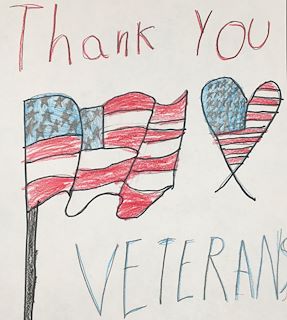 Thank YOU
VETERANS